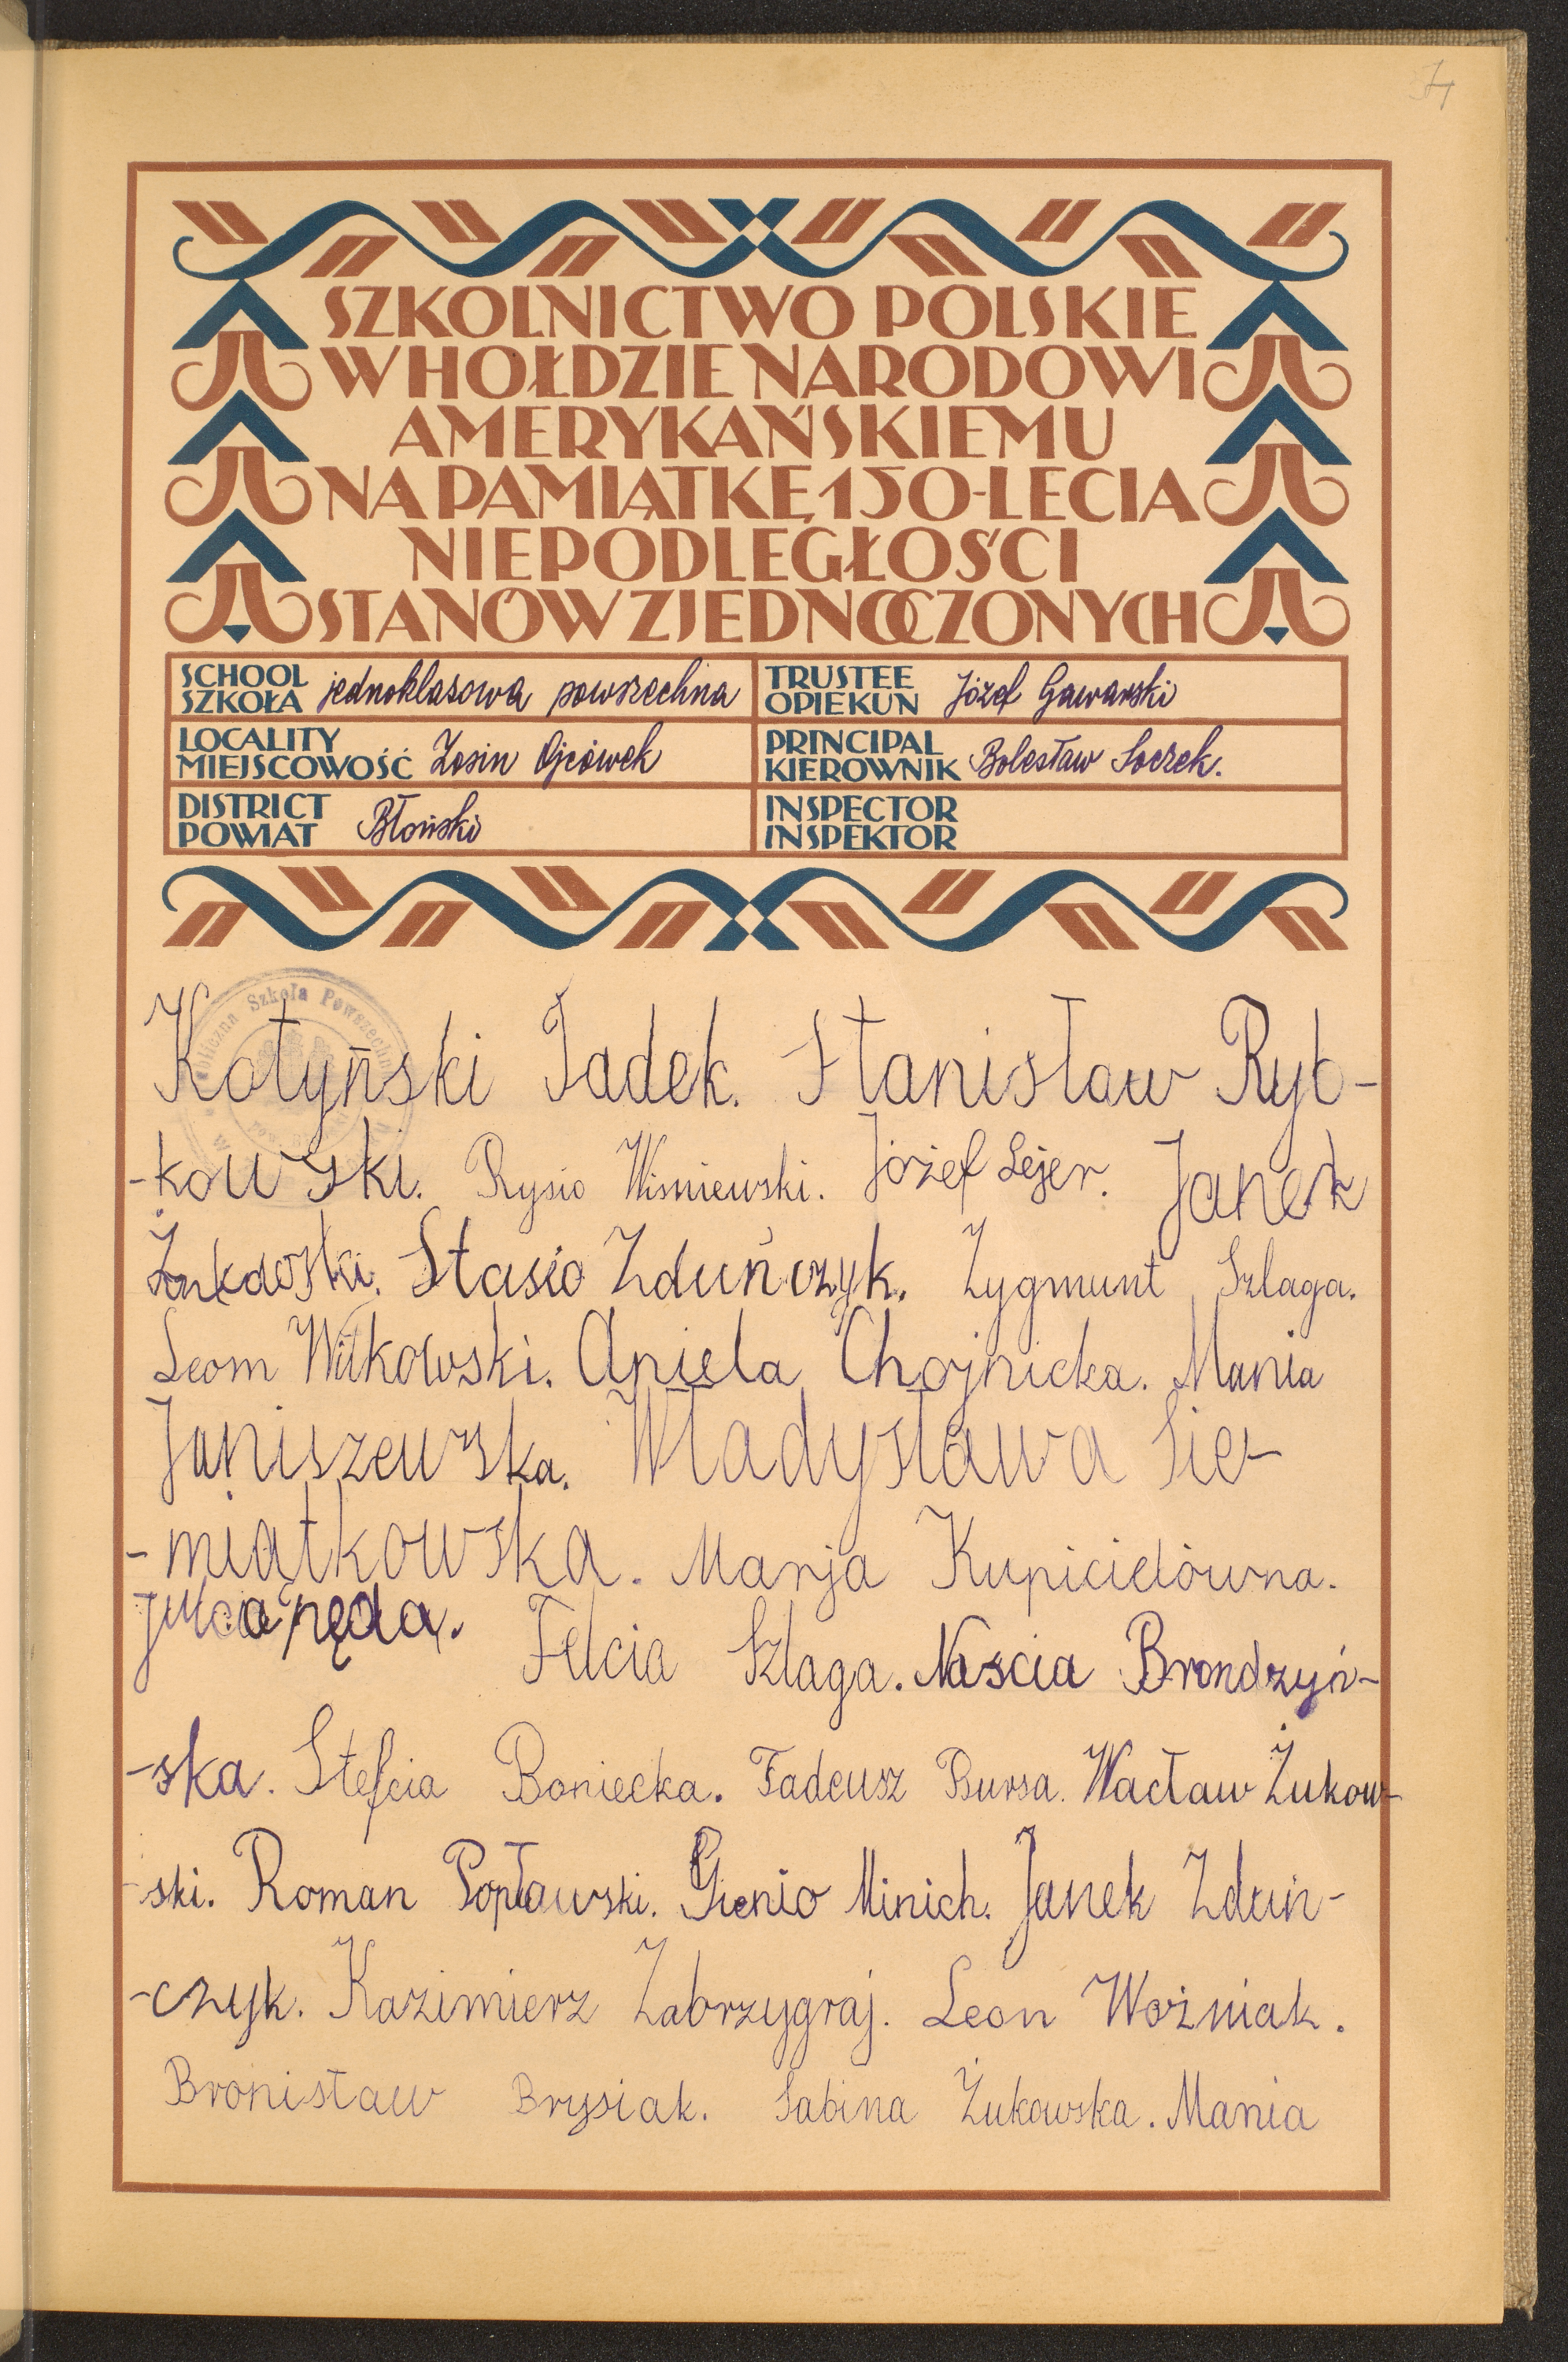 SZKOLNICTWO POLSKIE
W HOŁDZIE NARODOWI
AMERYKAŃSKIEMU
NA PAMIĄTKĘ 150-LECIA
NIEPODLEGŁOŚCI
STANÓW ZJEDNOCZONYCH
SCHOOL
SZKOŁA jednoklasowa powszechna
TRUSTEE
OPIEKUN Józef Gawarski
LOCALITY
MIEJSCOWOŚĆ Zosin Ojcówek
PRINCIPAL
KIEROWNIK Bolesław Soczek.
DISTRICT
POWIAT Błoński
INSPECTOR
INSPEKTOR
Szkoła Powszechna
Kotyński Tadek. Stanisław Ryb-
-kowski. Rysio Wisniewski. Józef Lejer. Janek
Stasio Zduńczyk. Zygmunt Szlaga.
Leom Witkowski. Aniela Chojnicka. Mania
Janiszewska. Władysława Sie-
-miątkowska. Marja Kupicielówna.
Felcia Szlaga. Naścia Brondzyń-
-ska. Stefcia Boniecka. Tadeusz Bursa. Wacław Żukow-
-ski. Roman Popławski. Gienio Minich. Janek Zduń-
-czyk. Kazimierz Zabrzygraj. Leon Woźniak.
Bronisław Brysiak. Sabina Żukowska. Mania